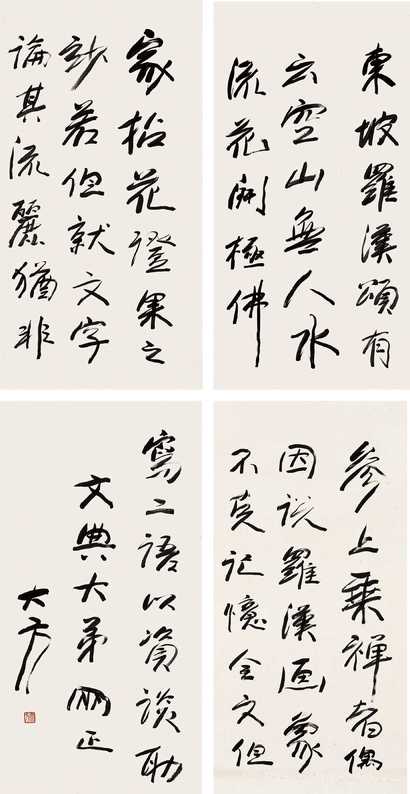 東坡羅漢頌有
云空山無人水
流花開極佛
家拈花證果之
妙若但就文字
論其流麗猶非
參上乘禪者偶
因說羅漢画象
不克記憶全文但
寫二語以資談助
文典大弟正
大方